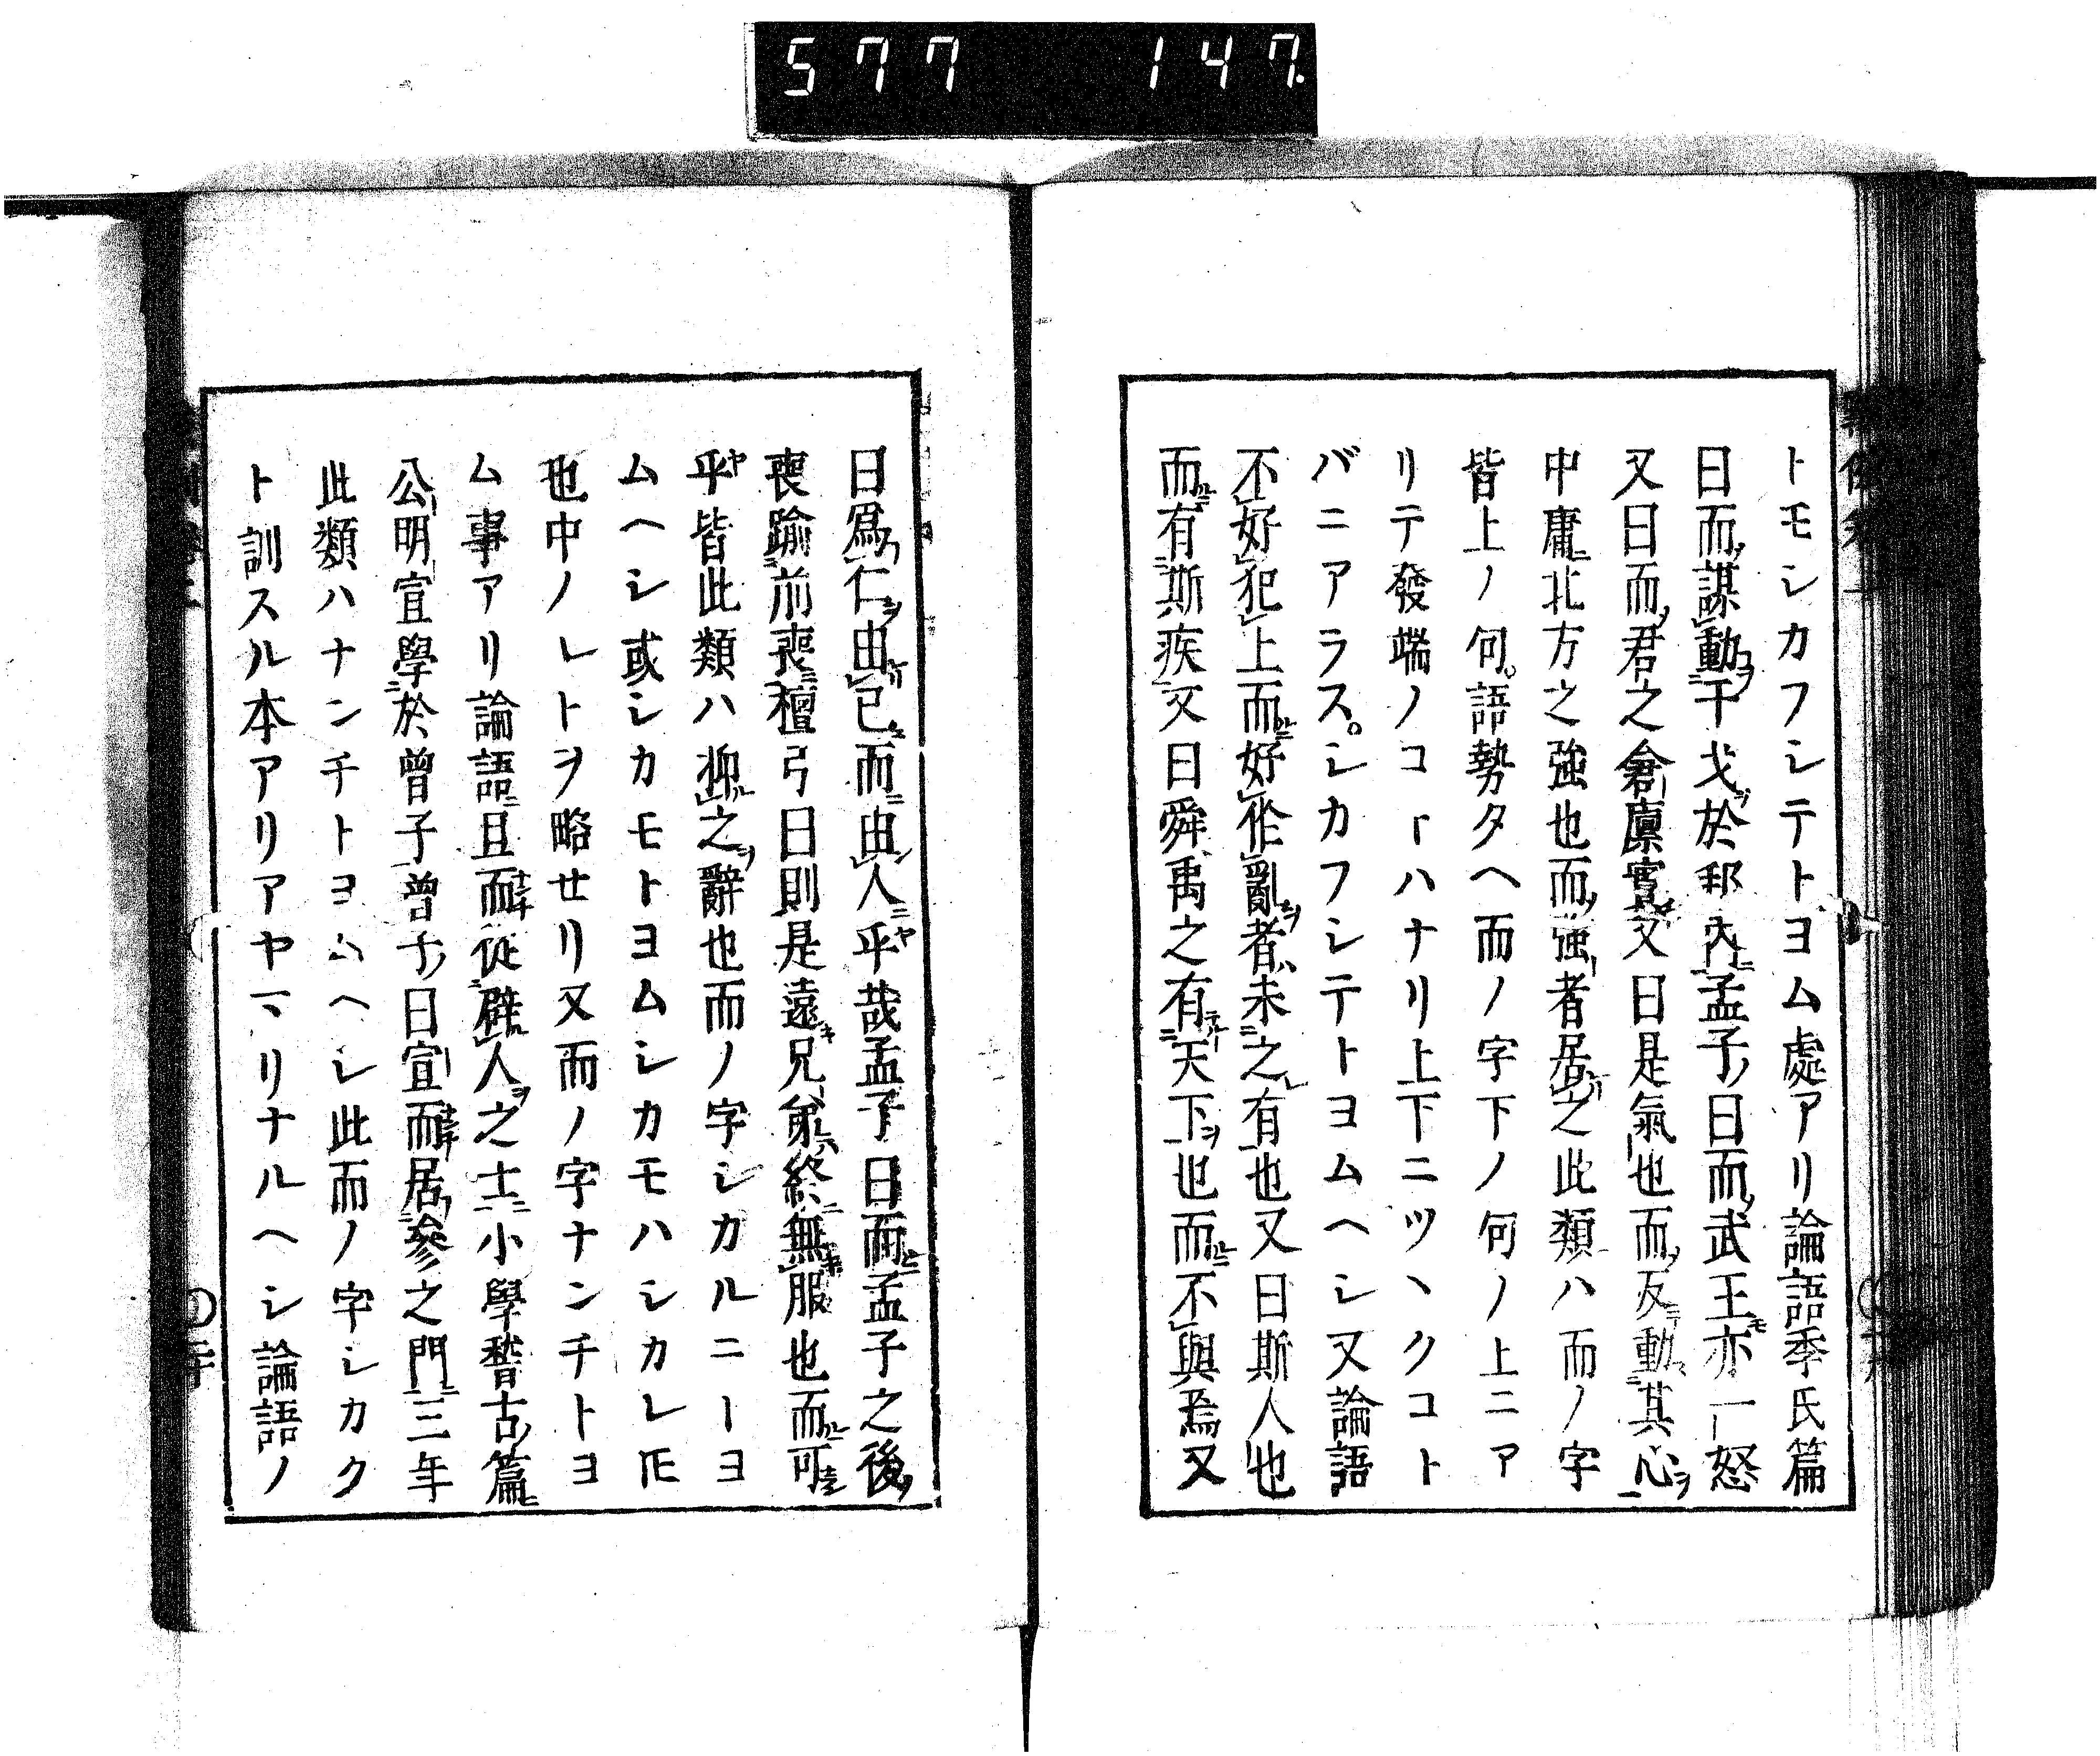 577 147.
トモシカフシテトヨム處アリ論語季氏篇
曰而謀動干戈於邦內孟子曰而武王亦一怒
又曰而君之倉廩實又曰是氣也而反動其心
中庸北方之強也而強者居之此類ハ而ノ字
皆上ノ句。語勢タヘ而ノ字下ノ句ノ上ニア
リテ發端ノコーハナリ上下ニツヽクコト
バニアラス。シカフシテトヨムヘシ又論語
不好犯上而好作亂者未之有也又曰斯人也
而有斯疾又曰舜禹之有天下也而不與焉又
曰爲仁由己而由人乎哉孟子曰而孟子之後
喪踰前喪檀弓曰則是遠兄弟終無服也而可
乎皆此類ハ抑之辭也而ノ字シカルニーヨ
ムヘシ或シカモトヨムシカモハシカレ𪜈
也中ノレトヲ略セリ又而ノ字ナンチトヨ
ム事アリ論語且而從辟人之士小學稽古篇
公明宣學於曾子曾子曰宣而居參之門三年
此類ハナンチトヨムヘシ此而ノ字シカク
ト訓スル本アリアヤマリナルヘシ論語ノ